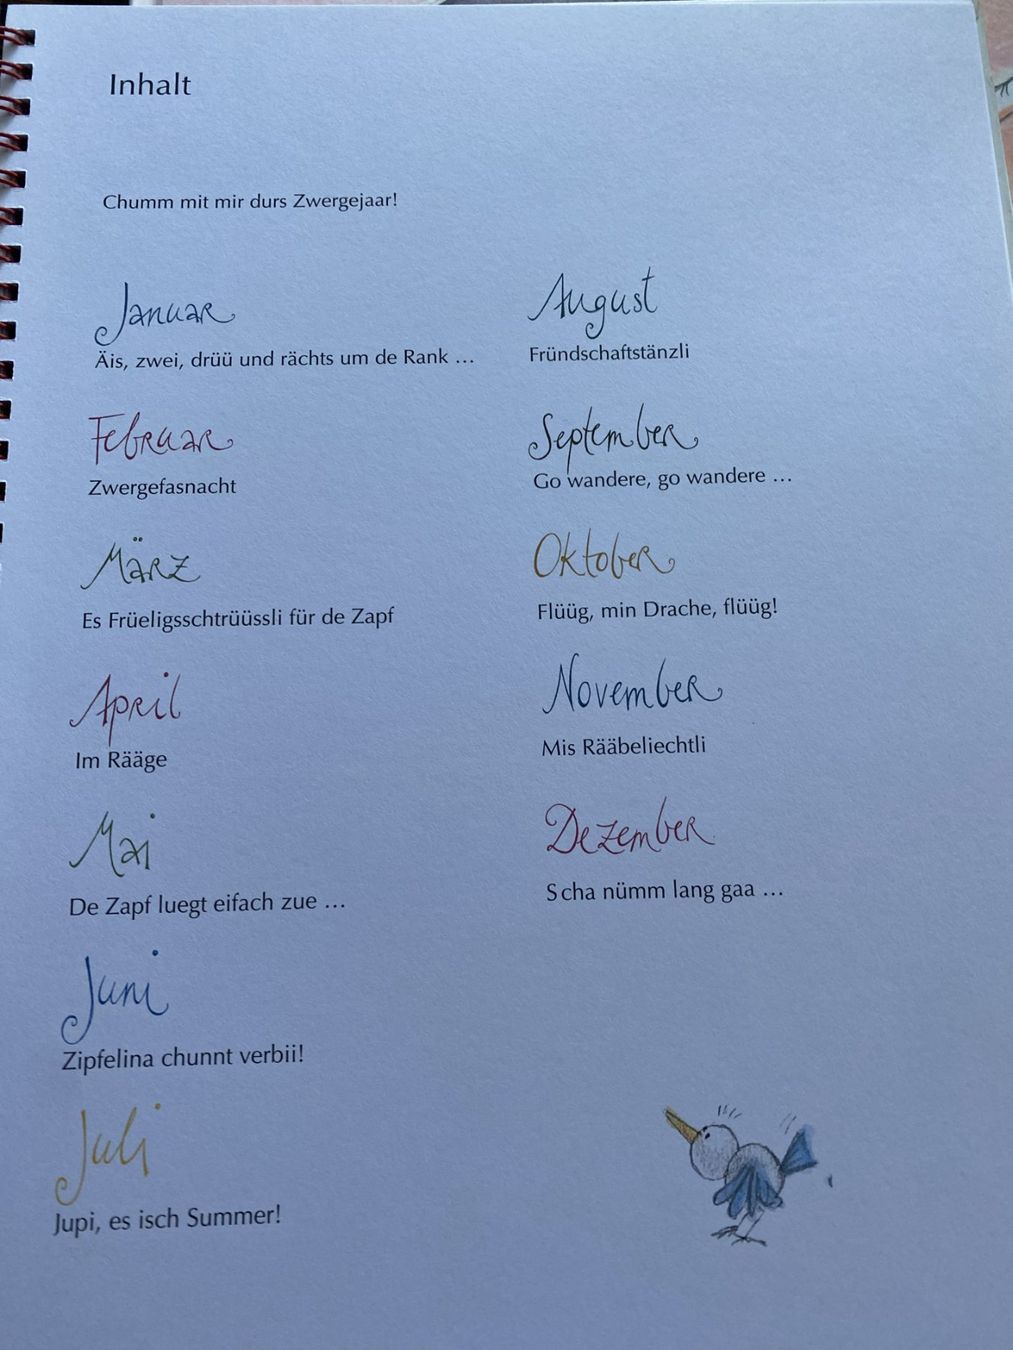 Inhalt
Chumm mit mir durs Zwergejaar!
Januar
Äis, zwei, drüü und rächts um de Rank ...
Februar
Zwergefasnacht
März
Es Früeligsschtrüüssli für de Zapf
April
Im Rääge
Mai
De Zapf luegt eifach zue ...
Juni
Zipfelina chunnt verbii!
Juli
Jupi, es isch Summer!
August
Fründschaftstänzli
September
Go wandere, go wandere ...
Oktober
Flüüg, min Drache, flüüg!
November
Mis Rääbeliechtli
Dezember
S cha nümm lang gaa ...